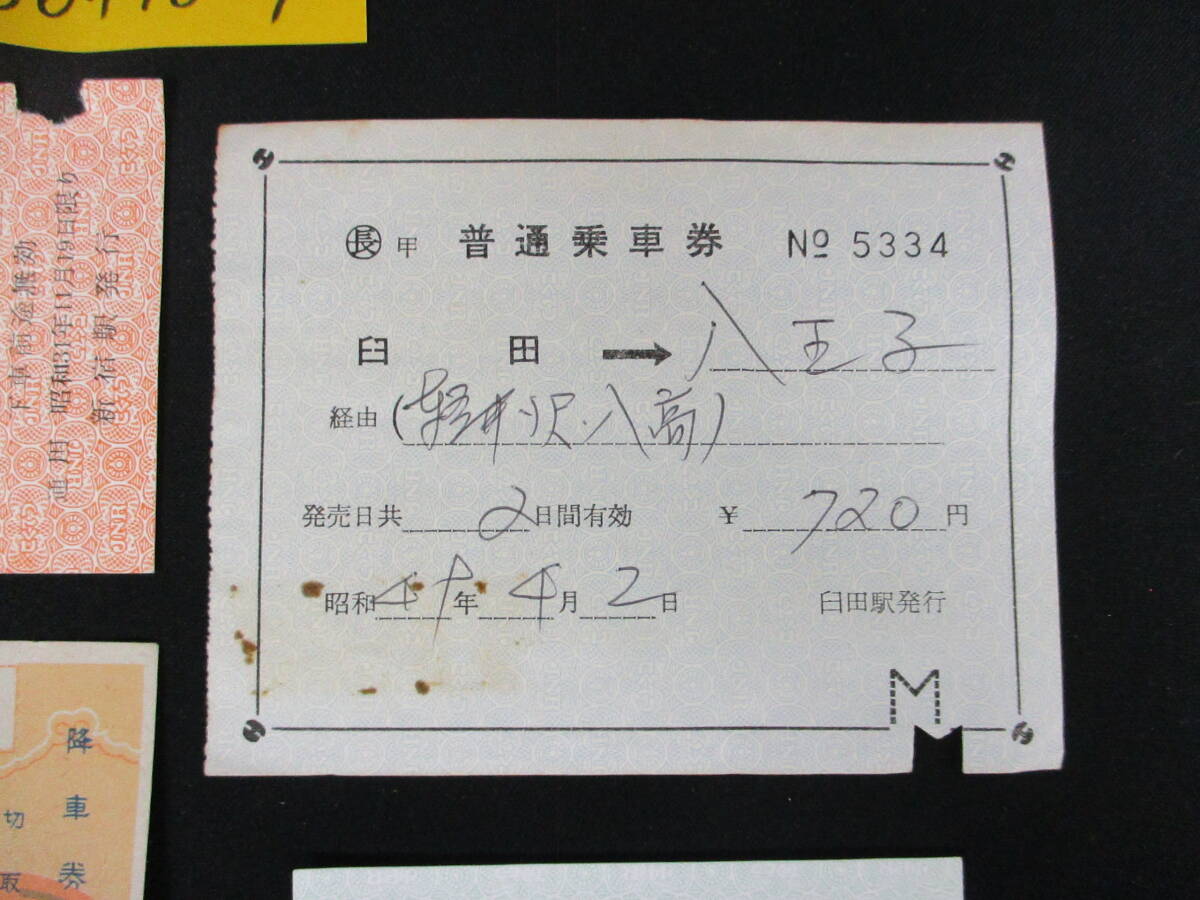 下車前途無効
通用 昭和31年11月19日限り
新宿駅発行
㊞長 甲 普通乗車券 № 5334
臼田 → 八王子
経由 (軽井沢.八高)
発売日共 2 日間有効 ¥ 720 円
昭和 47 年 4 月 2 日 臼田駅発行
M
降車券
切取